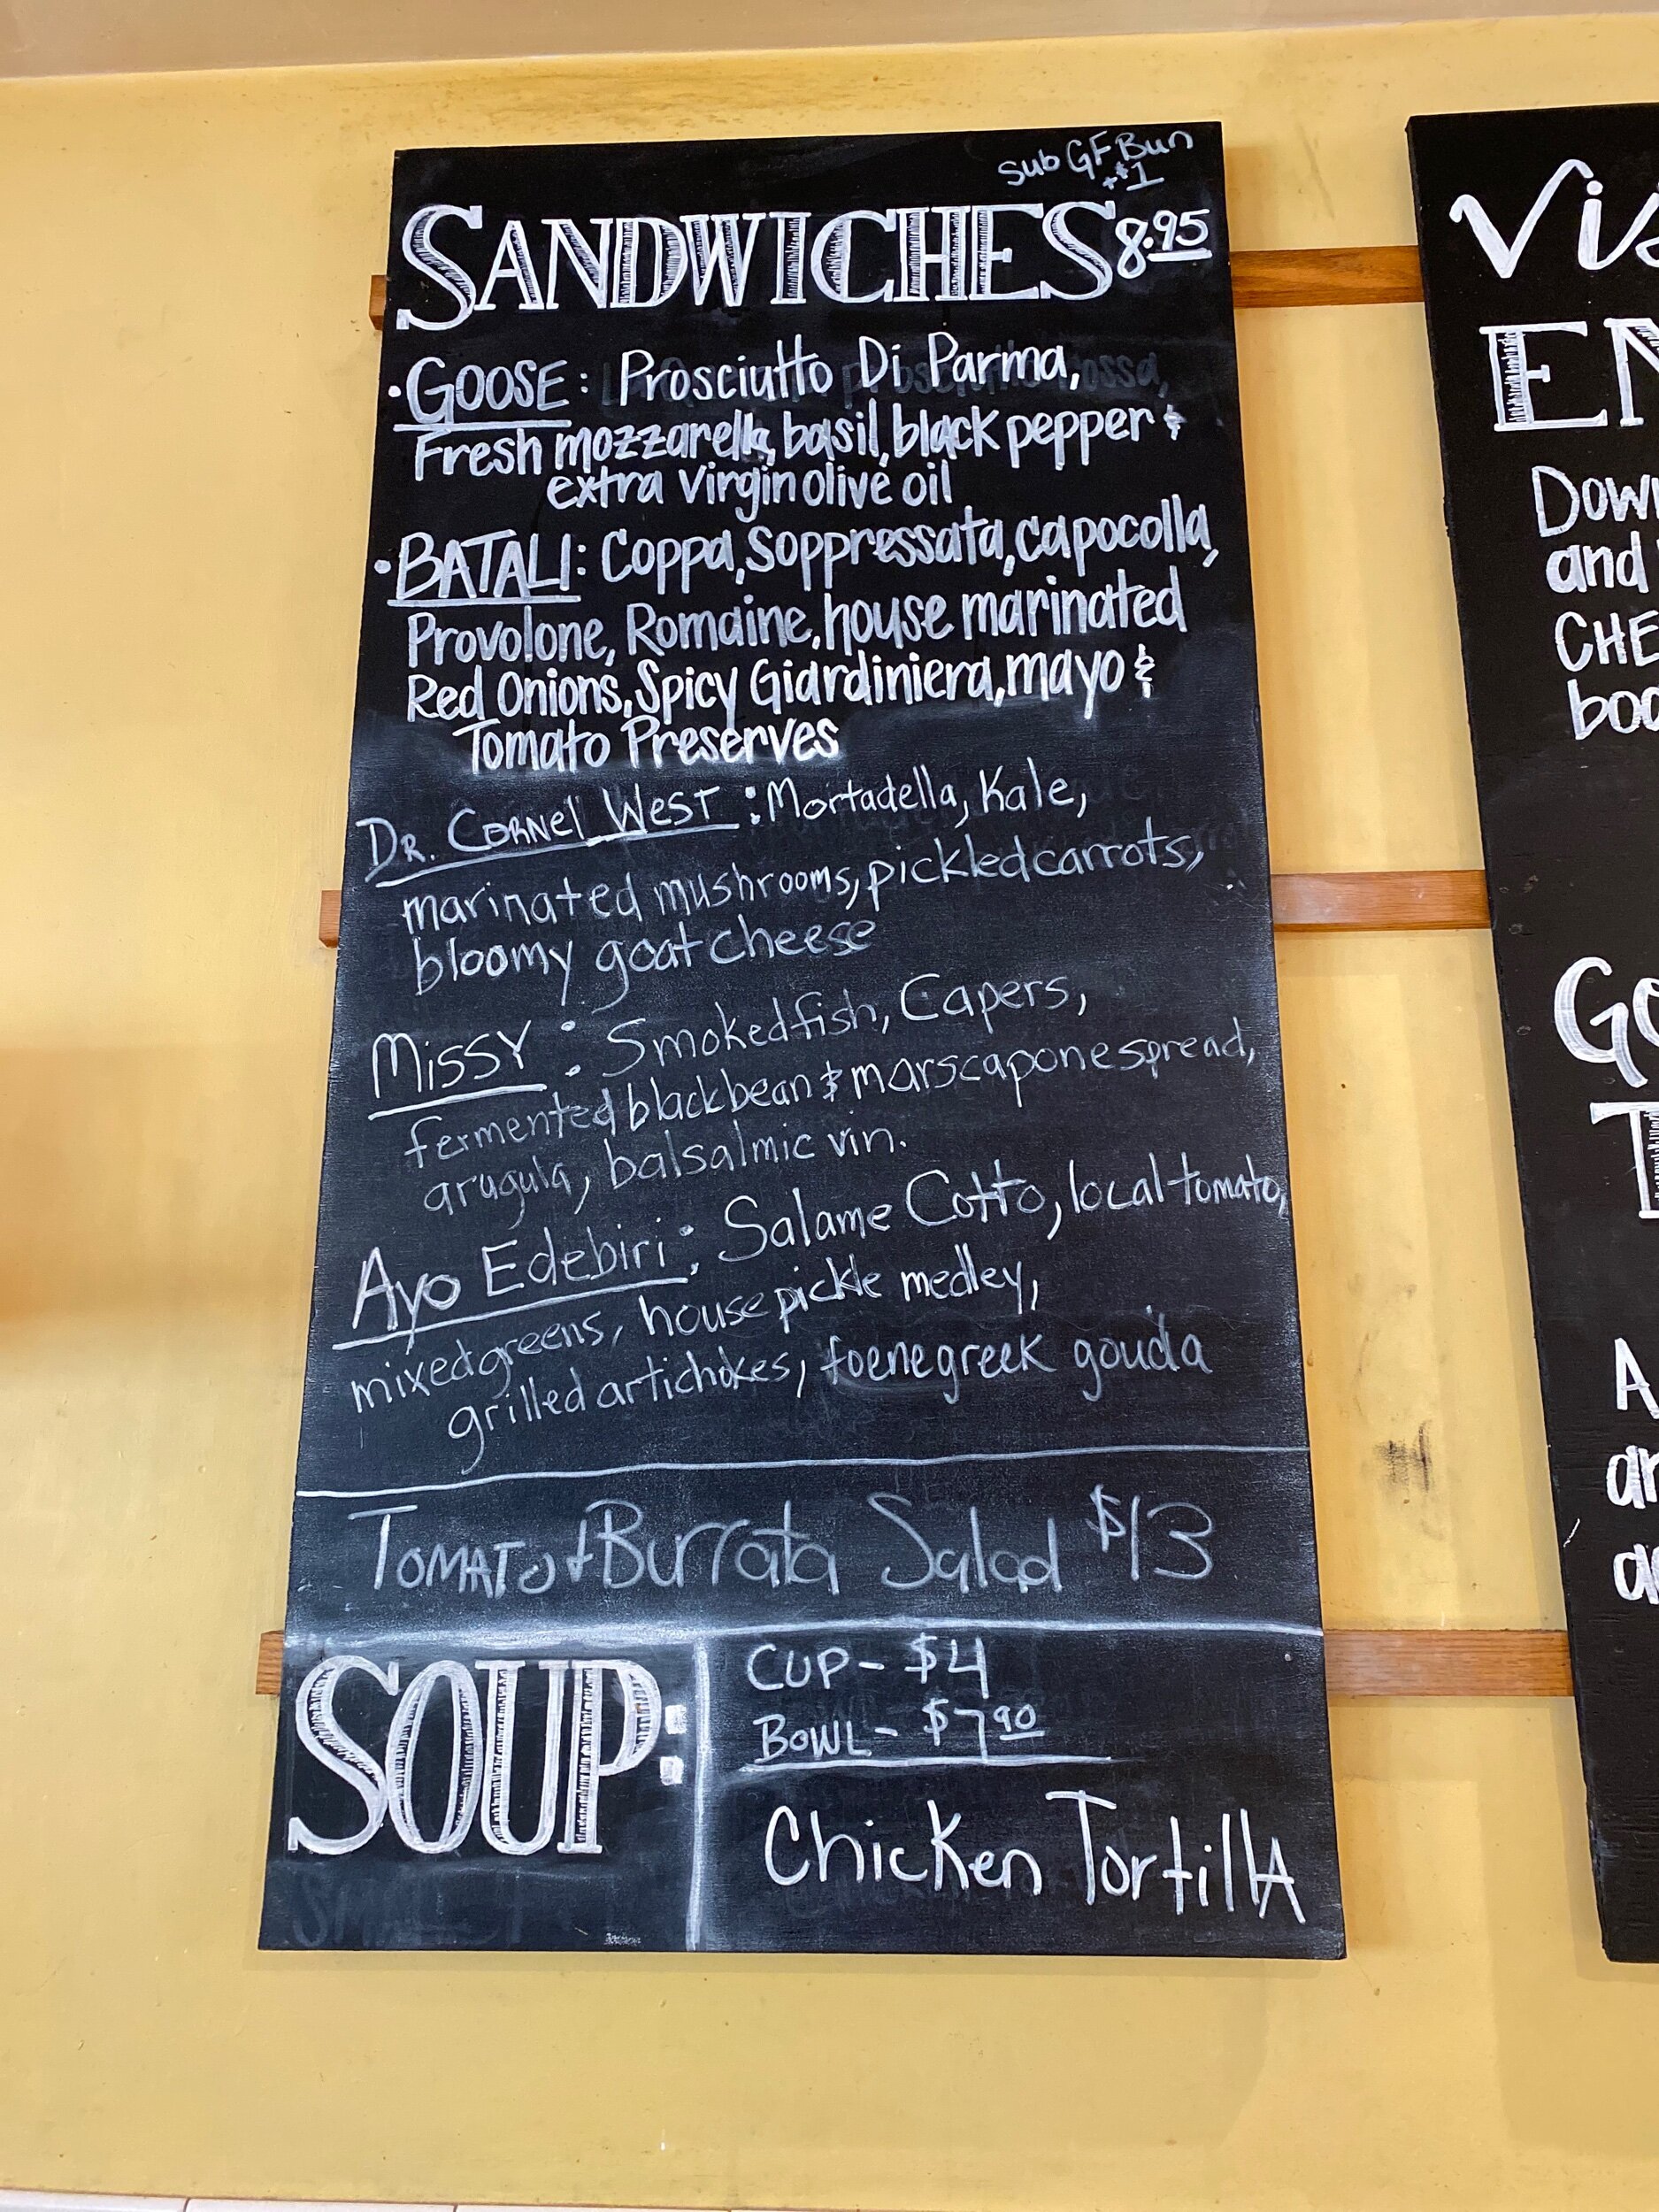 Sub GF Bun
+$1
SANDWICHES 8.95
• GOOSE: Prosciutto Di Parma,
Fresh mozzarella, basil, black pepper &
extra virgin olive oil
• BATALI: Coppa, Soppressata, capocolla,
Provolone, Romaine, house marinated
Red Onions, Spicy Giardiniera, mayo &
Tomato Preserves
DR. CORNEl WEST: Mortadella, Kale,
marinated mushrooms, pickled carrots,
bloomy goat cheese
MiSSY: Smoked fish, Capers,
fermented black bean & marscapone spread,
arugula, balsalmic vin.
Ayo Edebiri: Salame Cotto, local tomato,
mixed greens, house pickle medley,
grilled artichokes, foenegreek gouda
TOMATO + Burrata Salad $13
SOUP:
CUP - $4
BOWL - $7.90
Chicken TortillA
Vis
EN
Dow
and
CHE
Go
T
A